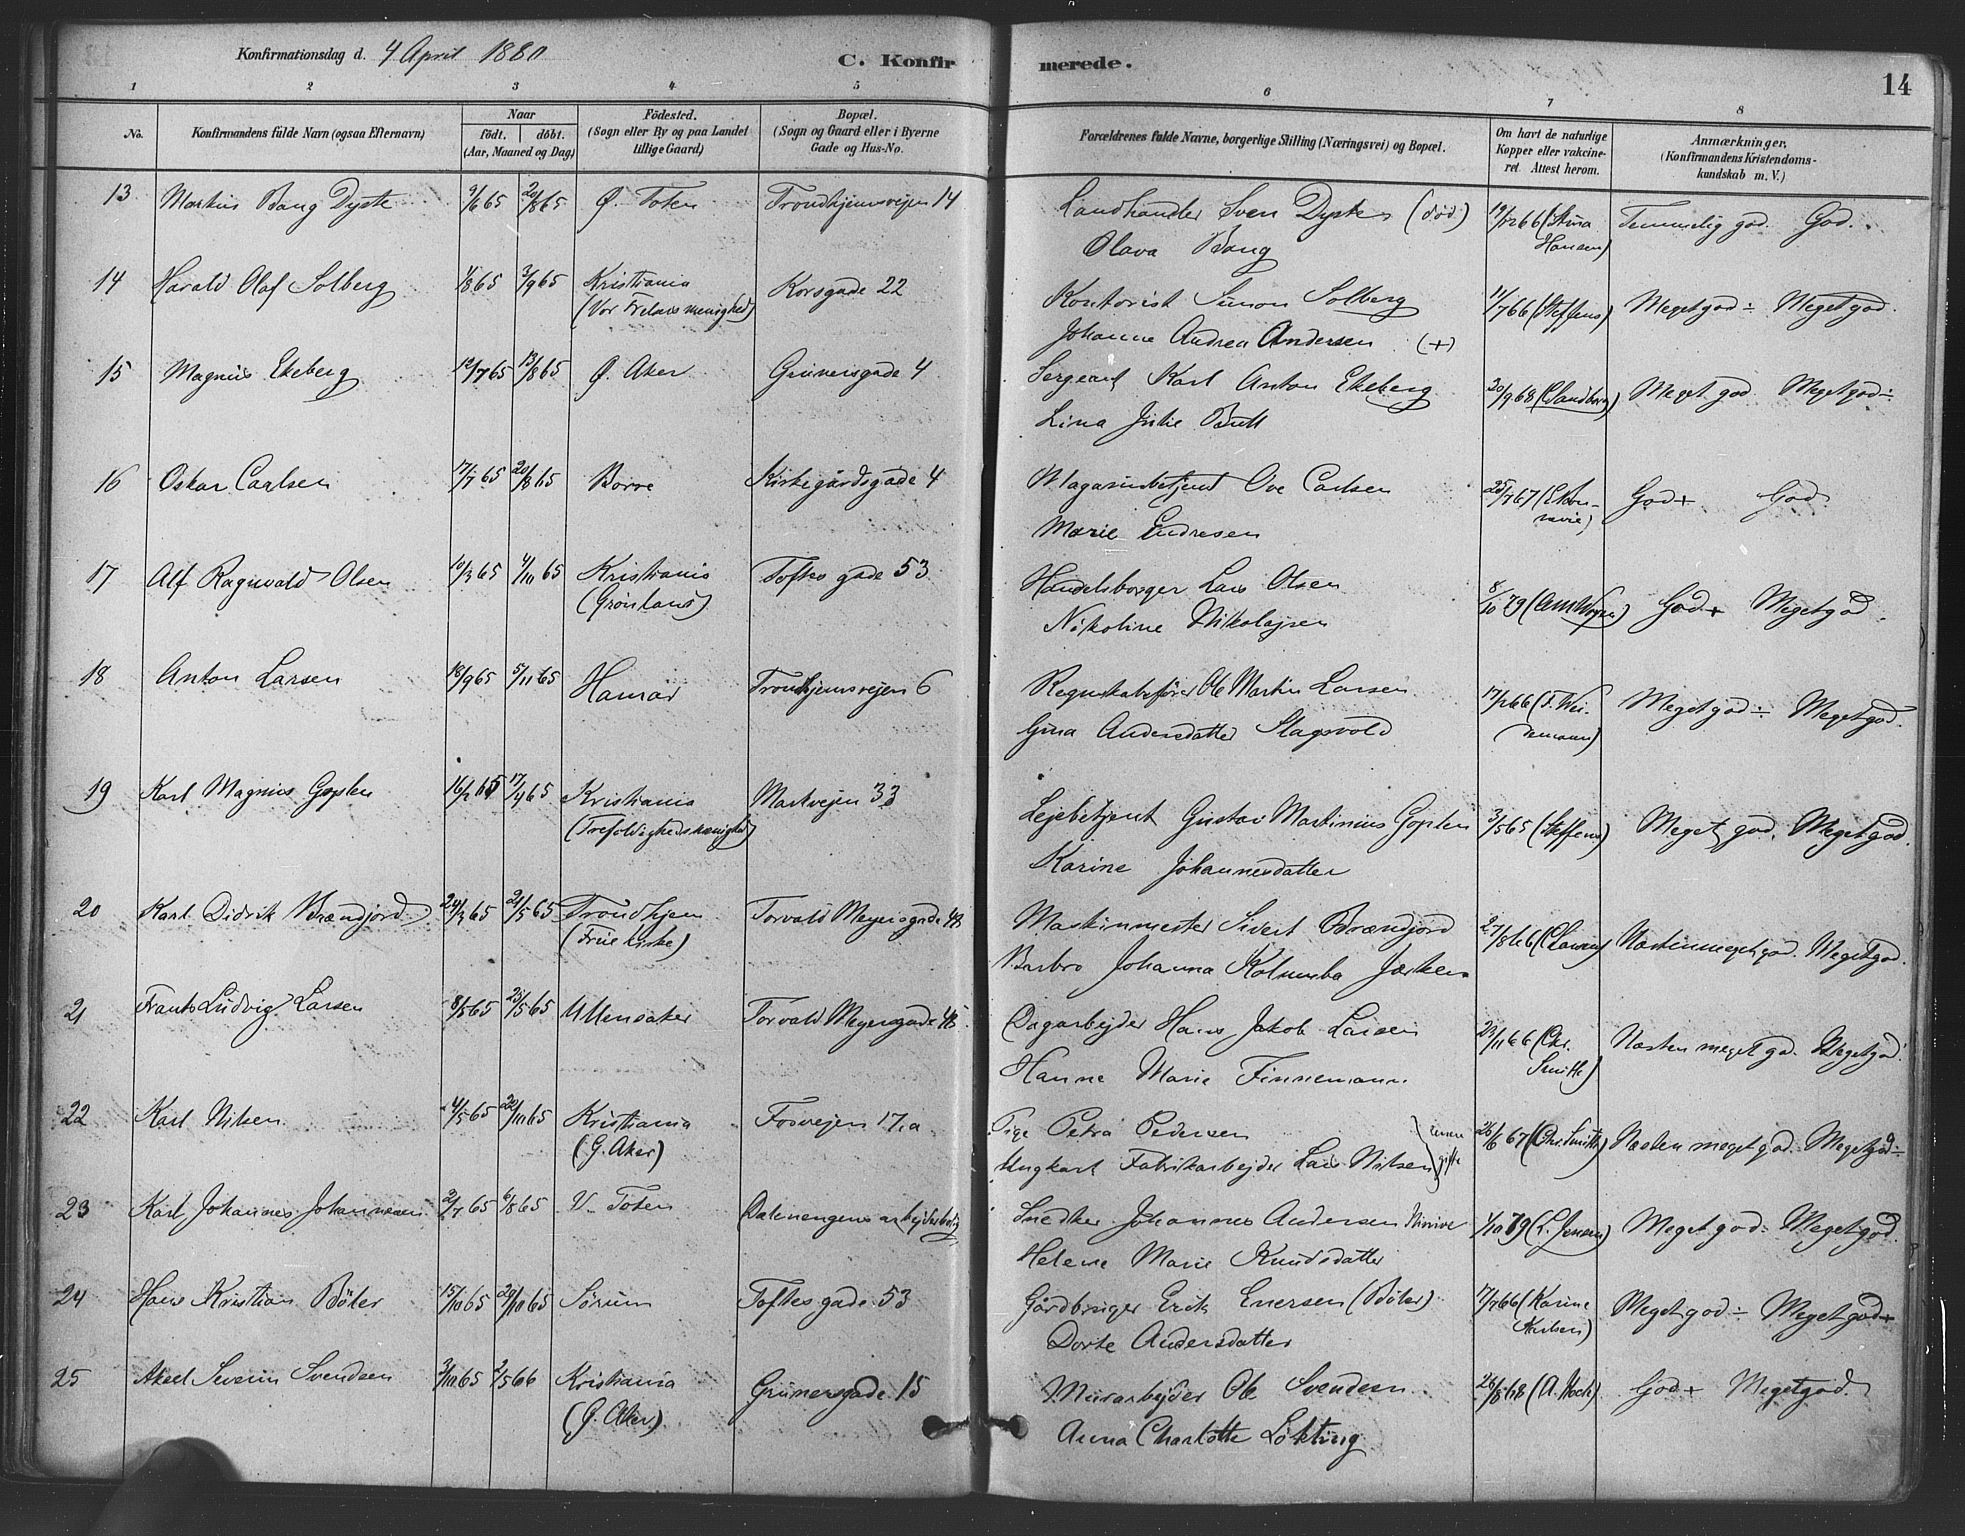 Konfirmationsdag d. 4 April 1880
C. Konfirmerede.
14
1 2 3 4 5 6 7 8
No.
Konfirmandens fulde Navn (ogsaa Efternavn)
Naar
födt. döbt.
(Aar, Maaned og Dag)
Födested.
(Sogn eller By og paa Landet
tillige Gaard)
Bopæl.
(Sogn og Gaard eller i Byerne
Gade og Hus-No.
Forældrenes fulde Navne, borgerlige Stilling (Næringsvei) og Bopæl.
Om havt de naturlige
Kopper eller vakcine-
ret Attest herom.
Anmærkninger.
(Konfirmandens Kristendoms-
kundskab m. V.)
13 Martius Bang Dyste 9/6 65 20/8 65 Ø. Toten Trondhjemsvejen 14 Landhandler Sven Dyste (død) 19/12 66 (Stina Temmelig god. God.
Olava Bang Hansen)
14 Harald Olaf Solberg 1/8 65 3/9 65 Kristiania Korsgade 22 Kontorist Simon Solberg 11/7 66 (Steffens) Meget god ÷ Meget god.
(Vor Frelsers menighed) Johanne Andrea Andersen (+)
15 Magnus Ekeberg 12/7 65 13/8 65 Ø. Aker Grünersgade 4 Sergeant Karl Anton Ekeberg 20/9 68 (Sandborg) Meget god Meget god ÷
Lina Julie Bull
16 Oskar Carlsen 17/7 65 20/8 65 Borre Kirkegårdsgade 4 Magasinbetjent Ove Carlsen 25/7 67 God + God
Marie Endresen
17 Alf Ragnvald Olsen 10/3 65 4/10 65 Kristiania Toftes gade 53 Handelsborger Lars Olsen 8/10 79 God + Meget god
(Grønlans) Nikoline Nikolajsen
18 Anton Larsen 18/9 65 5/11 65 Hamar Trondhjemsvejen 6 Regnskabsfører Ole Martin Larsen 17/7 66 (F. Wei- Meget god ÷ Meget god.
Gina Andersdatter Slagsvold demann)
19 Karl Magnus Goplen 16/2 65 17/4 65 Kristiania Markvejen 33 Lejebetjent Gustav Martinius Goplen 3/5 65 (Steffens) Meget god. Meget god.
(Trefoldighedsmenighed) Karine Johannesdatter
20 Karl Didrik Brændjord 24/3 65 21/5 65 Trondhjem Torvald Meyersgade 48 Maskinmester Sivert Brændjord 27/8 66 Næsten meget god. Meget god.
(Frue kirke) Barbro Johanna Kolumba
21 Frants Ludvig Larsen 8/3 65 25/5 65 Ullensaker Torvald Meyersgade 48 Dagarbejder Hans Jakob Larsen 23/11 66 (Chr. Næsten meget god. Meget god.
Hanne Marie Finnemann Smitt)
22 Karl Nilsen 4/5 65 22/10 65 Kristiania Fosvejen 17.a Pige Petra Pedersen 26/6 67 (Chr. Smitt) Næsten meget god. Meget god ÷
(G. Aker) Ungkarl Fabrikarbejder Lars Nilsen gifte
23 Karl Johannes Johannesen 2/7 65 6/8 65 V. Toten Dælenengens arbejderbolig Snedker Johannes Andersen 1/10 79 (L. Jensen) Meget god ÷ Meget god.
Helene Marie Knudsdatter
24 Hans Kristian Böler 15/10 65 29/10 65 Sørum Toftes gade 53 Gårdbruger Erik Enersen (Böler) 17/7 66 (Karine Meget god ÷ Meget god +
Dorte Andersdatter
25 Aksel Severin Svendsen 3/10 65 2/5 66 Kristiania Grünersgade 15 Murarbejder Ole Svendsen 26/8 68 (A. Hock) God + Meget god.
(G. Aker) Anna Charlotte Løkting